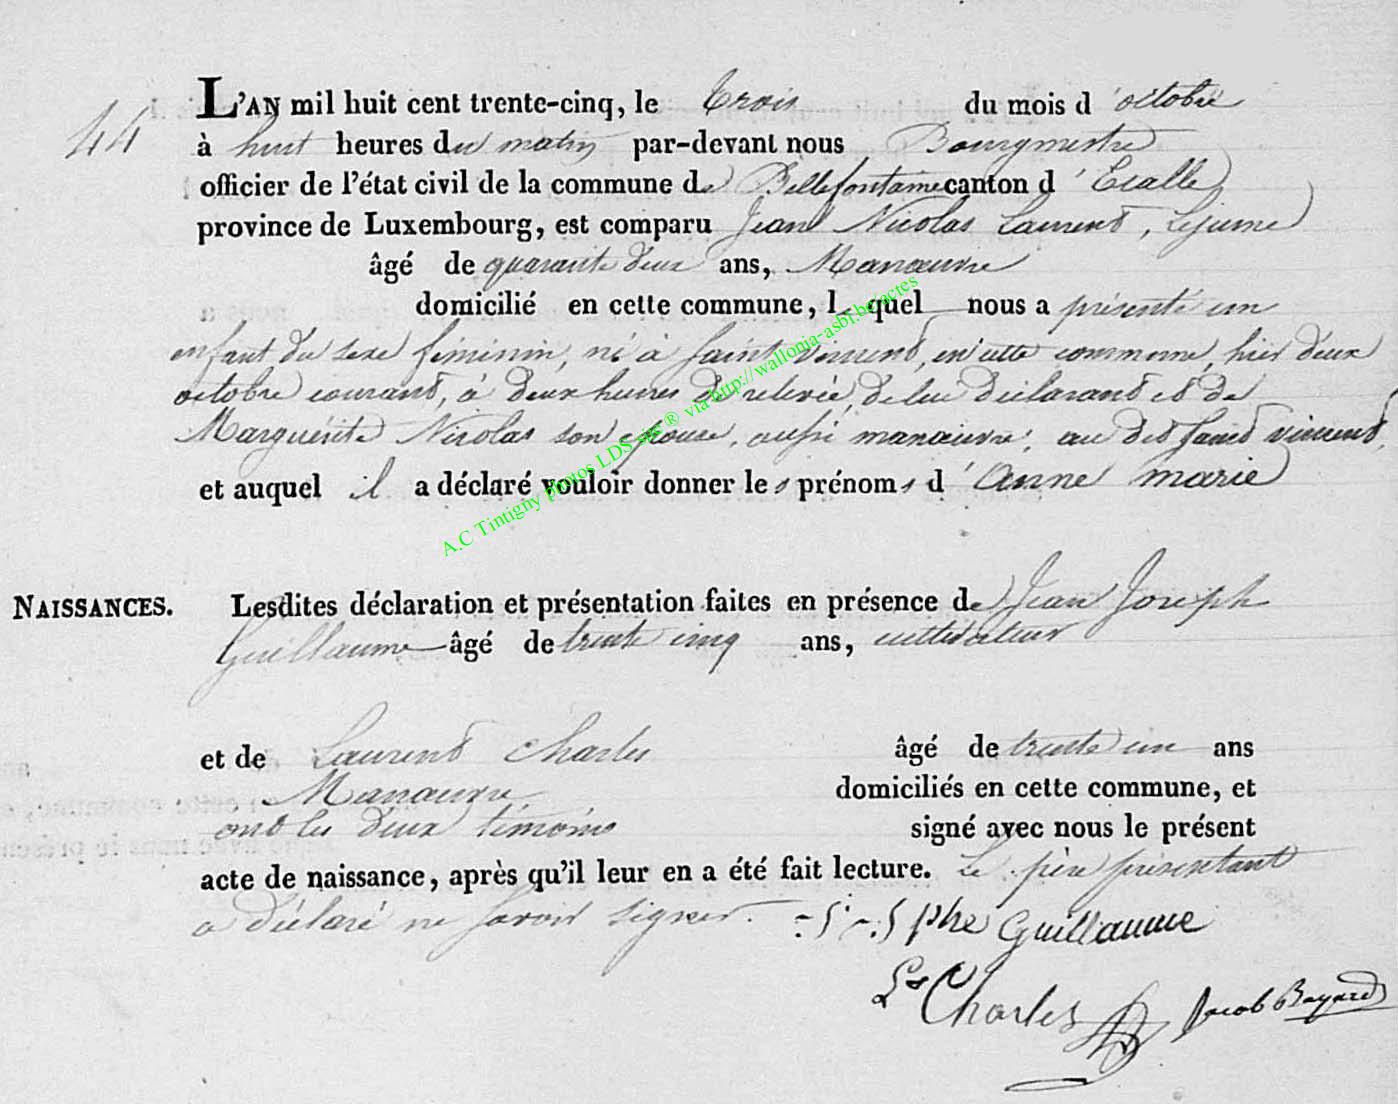 44
L'AN mil huit cent trente-cinq, le trois du mois d'octobre
à huit heures du matin par-devant nous Bourgmestre
officier de l'état civil de la commune de Bellefontaine canton d'Etalle
province de Luxembourg, est comparu Jean Nicolas Laurent, Lejeune
âgé de quarante deux ans, Manœuvre
domicilié en cette commune, l quel nous a présenté un
enfant du sexe féminin, né à Saint vincent, en cette commune, hier deux
octobre courant, à deux heures de relevée, de lui déclarant et de
Marguérite Nicolas son épouse, aussi manœuvre, au dit Saint vincent,
et auquel il a déclaré vouloir donner les prénoms d'Anne marie
A.C Tintigny photos LDS site ® via http://wallonia-asbl.be/actes
NAISSANCES.
Lesdites déclaration et présentation faites en présence de Jean Joseph
Guillaume âgé de trente cinq ans, cultivateur
et de Laurent Charles âgé de trente un ans
Manœuvre domiciliés en cette commune, et
ont les deux témoins signé avec nous le présent
acte de naissance, après qu'il leur en a été fait lecture. Le père présentant
a déclaré ne savoir signer. Guillaume
Lt Charles Jacob Bayard